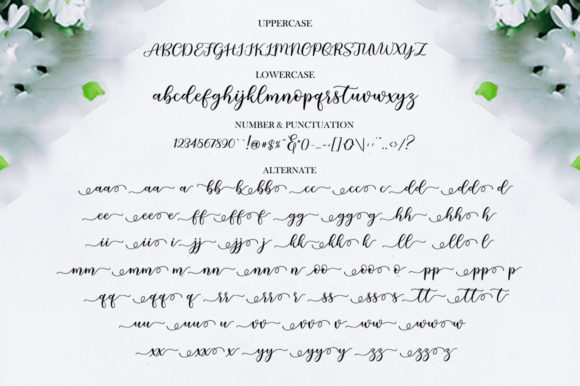 UPPERCASE
ABCDEFGHIJKLMNOPQRSTUVWXYZ
LOWERCASE
abcdefghijklmnopqrstuvwxyz
NUMBER & PUNCTUATION
1234567890
ALTERNATE
aaa aa a bb bbb cc ccc c dd ddd d
ee eee e ff fff f gg ggg g hh hhh h
ii iii i jj jjj j kk kkk k ll lll l
mm mmm m nn nnn n oo ooo o pp ppp p
qq qqq q rr rrr r ss sss s tt ttt t
uu uuu u vv vvv v ww www w
xx xxx x yy yyy y zz zzz z